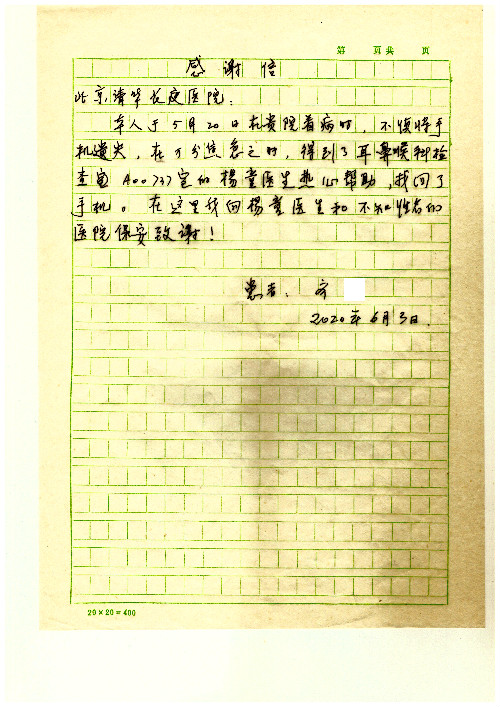 第　页共　页
感谢信
北京清华长庚医院：
本人于5月20日在贵院看病时，不慎将手
机遗失，在万分焦急之时，得到了耳鼻喉科检
查室A00737室的杨莹医生热心帮助，找回了
手机。在这里我向杨莹医生和不知姓名的
医院保安致谢！
患者：齐
2020年6月3日
20×20=400